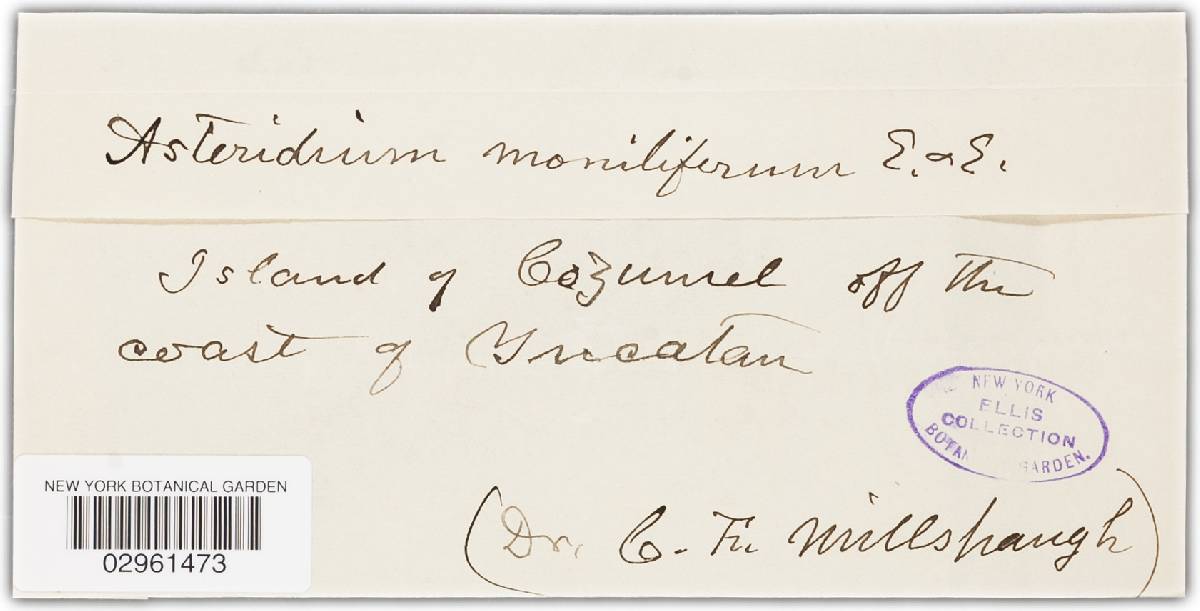 Asteridium moniliferum E. & E.
Island of Cozumel off the
coast of Yucatan
NEW YORK
ELLIS
COLLECTION
GARDEN.
NEW YORK BOTANICAL GARDEN
02961473
(Dr. C. F. Millspaugh)